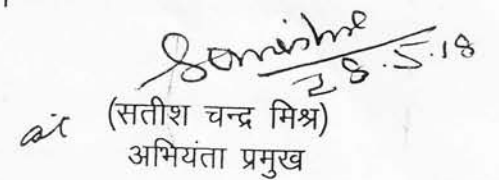 28.5.18
(सतीश चन्द्र मिश्र)
अभियंता प्रमुख